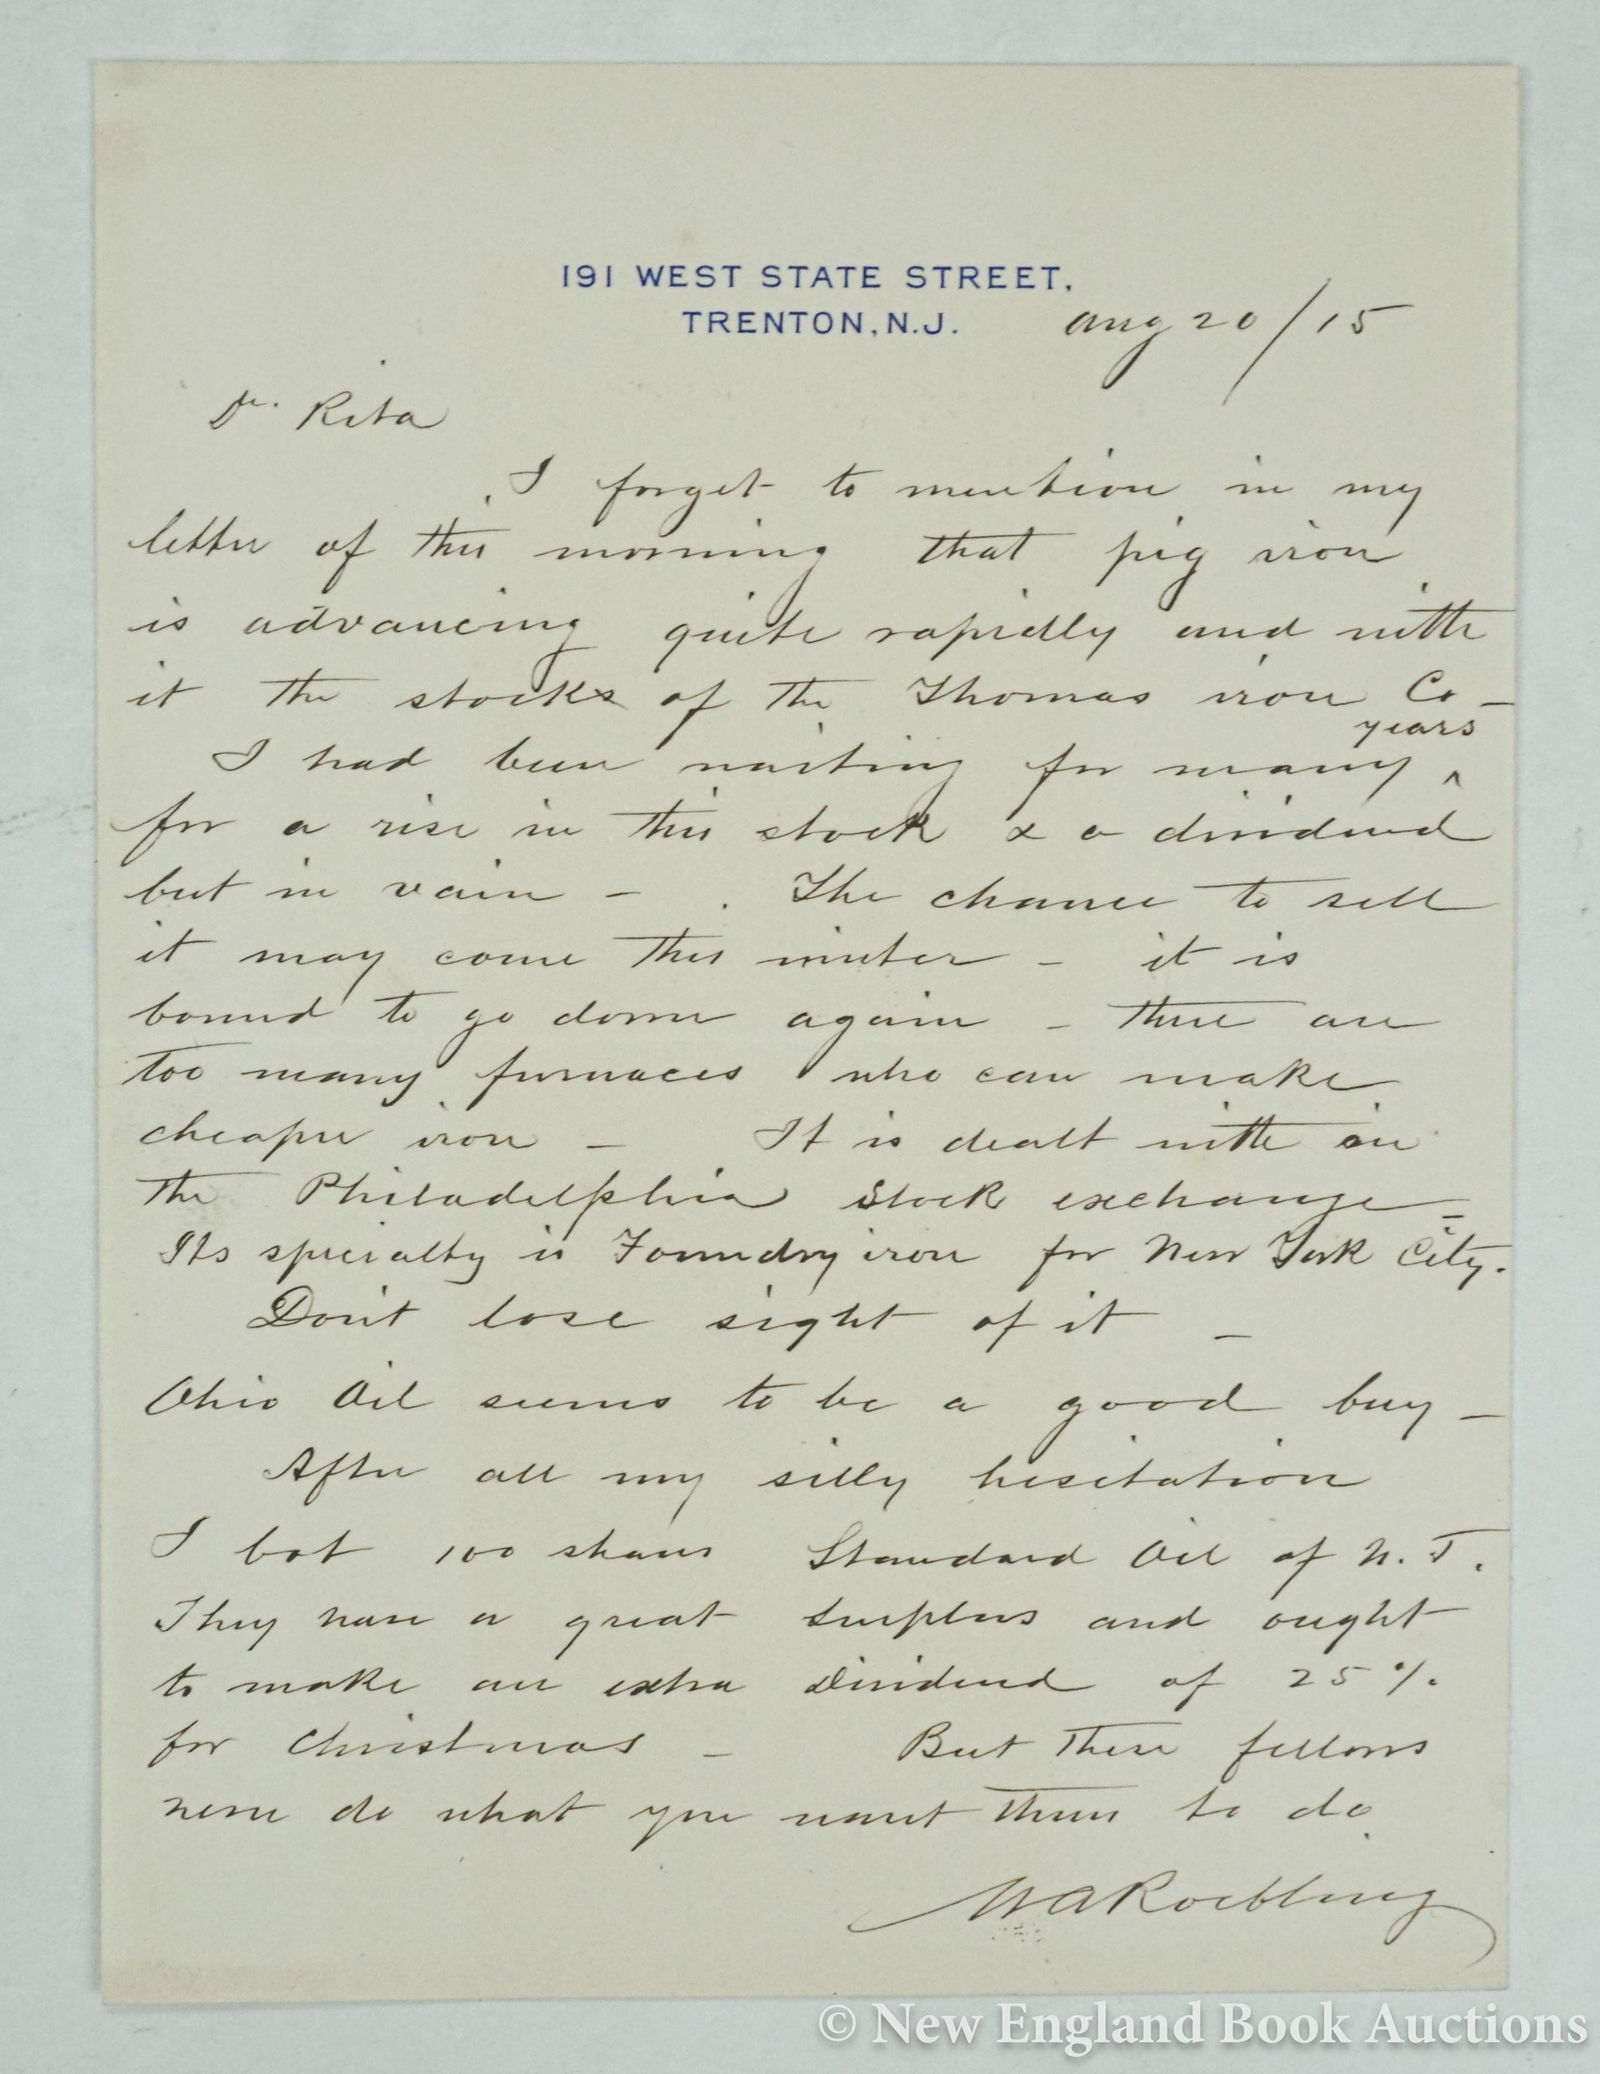 191 WEST STATE STREET,
TRENTON, N.J. Aug 20/15
Dr. Rita
I forget to mention in my
letter of this morning that pig iron
is advancing quite rapidly and with
it the stocks of the Thomas iron Co –
I had been waiting for many years
for a rise in this stock & a dividend
but in vain – The chance to sell
it may come this winter – it is
bound to go down again – there are
too many furnaces who can make
cheaper iron – It is dealt with in
the Philadelphia Stock exchange –
Its specialty is Foundry iron for New York City.
Don't lose sight of it –
Ohio Oil seems to be a good buy –
After all my silly hesitation
I bot 100 shares Standard Oil of N. J.
They have a great surplus and ought
to make an extra dividend of 25%
for Christmas – But these fellows
never do what you want them to do
WARoebling
© New England Book Auctions